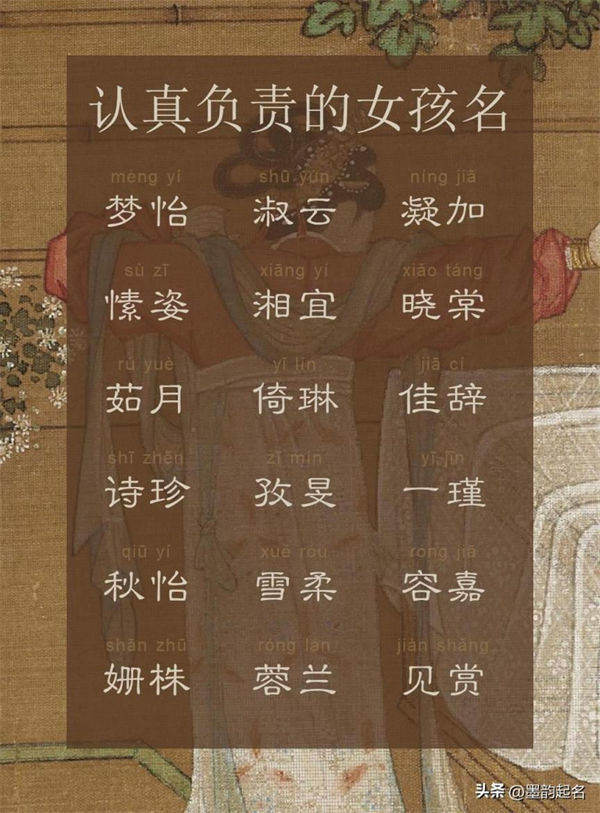 认真负责的女孩名
mèng yí shū yún níng jiā
梦怡 淑云 凝加
sù zī xiāng yí xiǎo táng
愫姿 湘宜 晓棠
rú yuè yǐ lín jiā cí
茹月 倚琳 佳辞
shī zhēn zī mín yī jǐn
诗珍 孜旻 一瑾
qiū yí xuě róu róng jiā
秋怡 雪柔 容嘉
shān zhū róng lán jiàn shǎng
姗株 蓉兰 见赏
头条 @墨韵起名